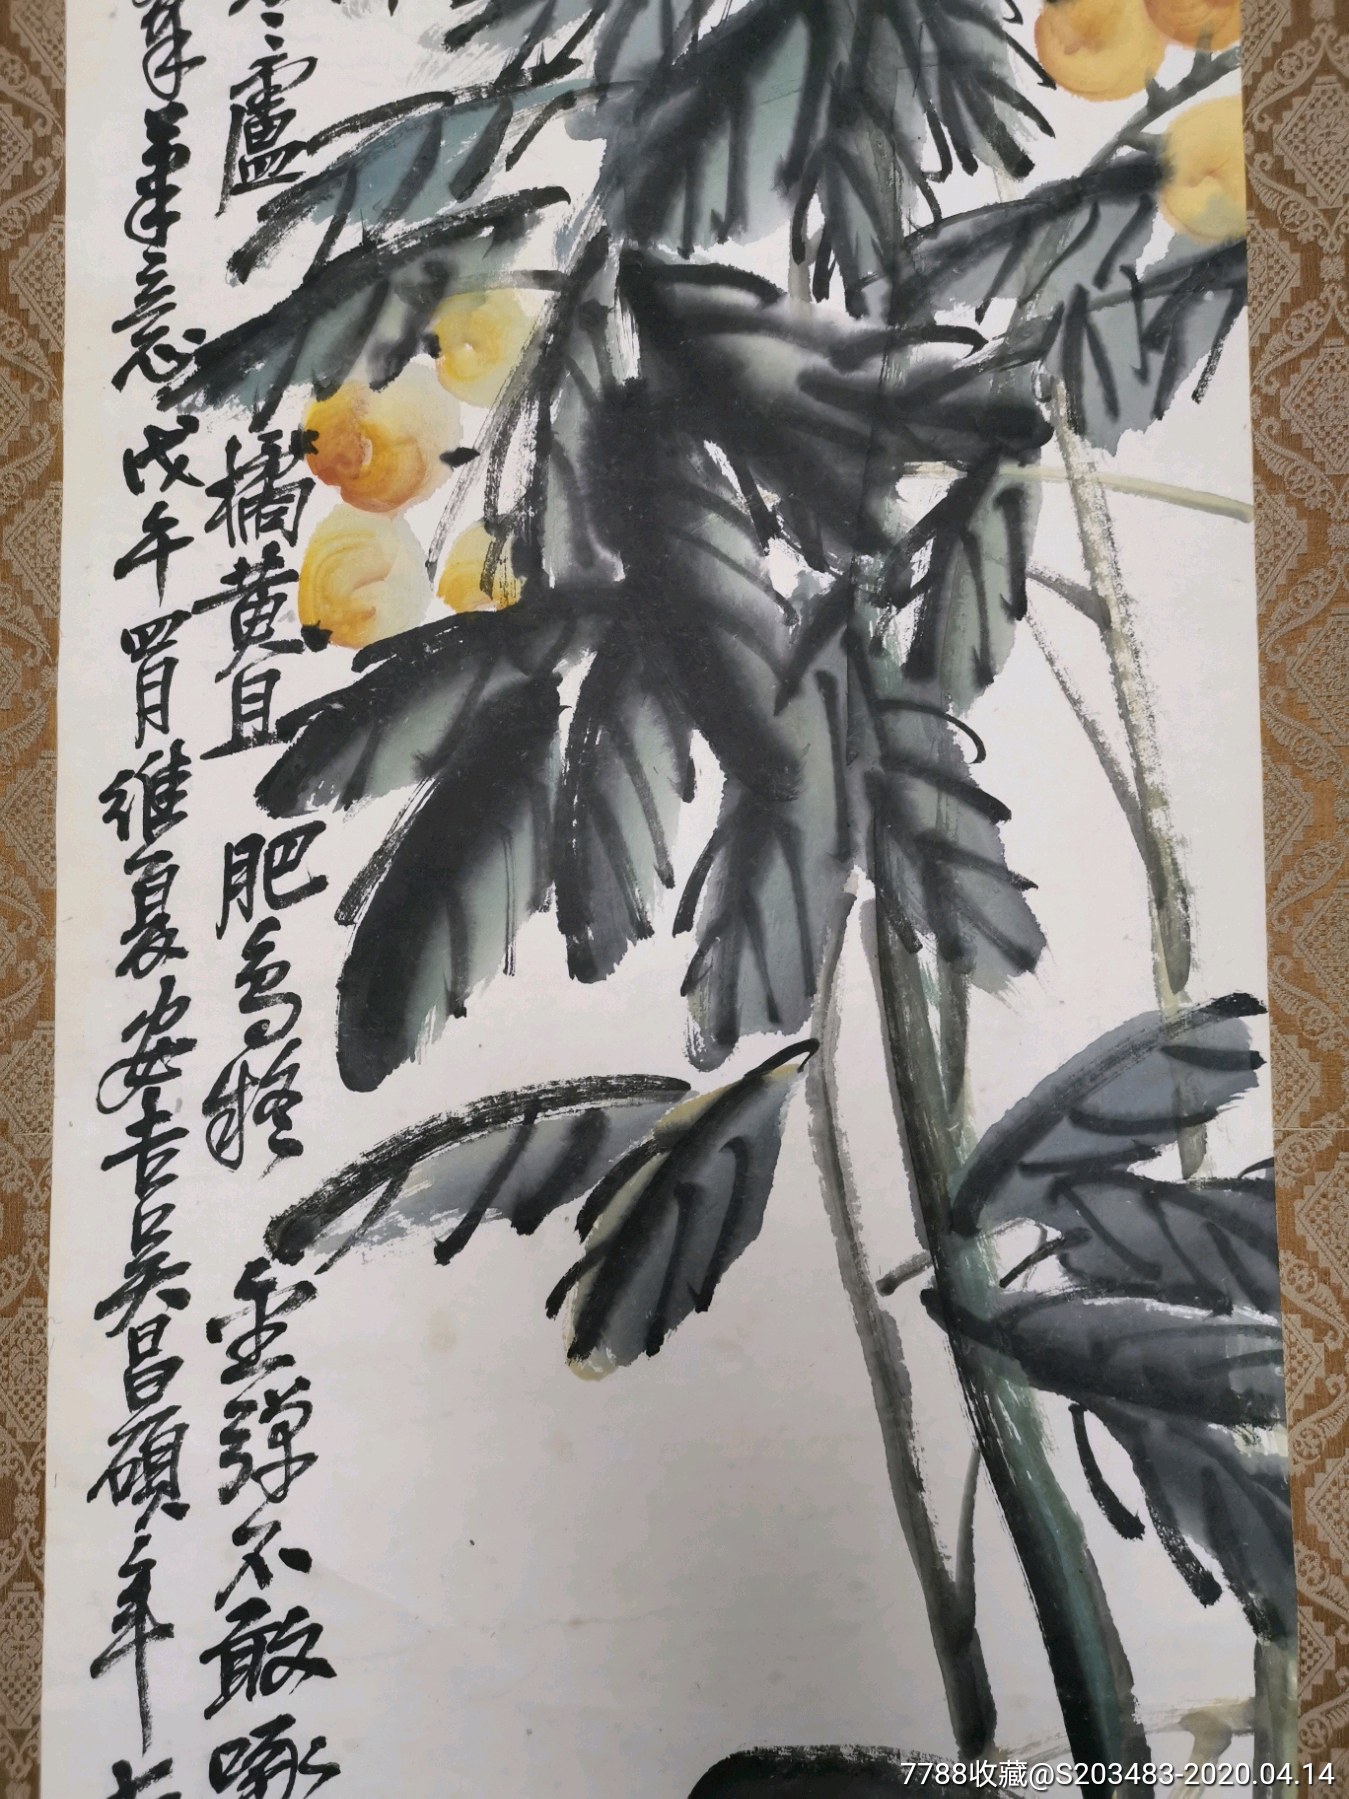 盧橘黄且肥鳥疑金彈不敢啄
筆意戊午四月維夏安吉吴昌碩年七
7788收藏@S203483-2020.04.14